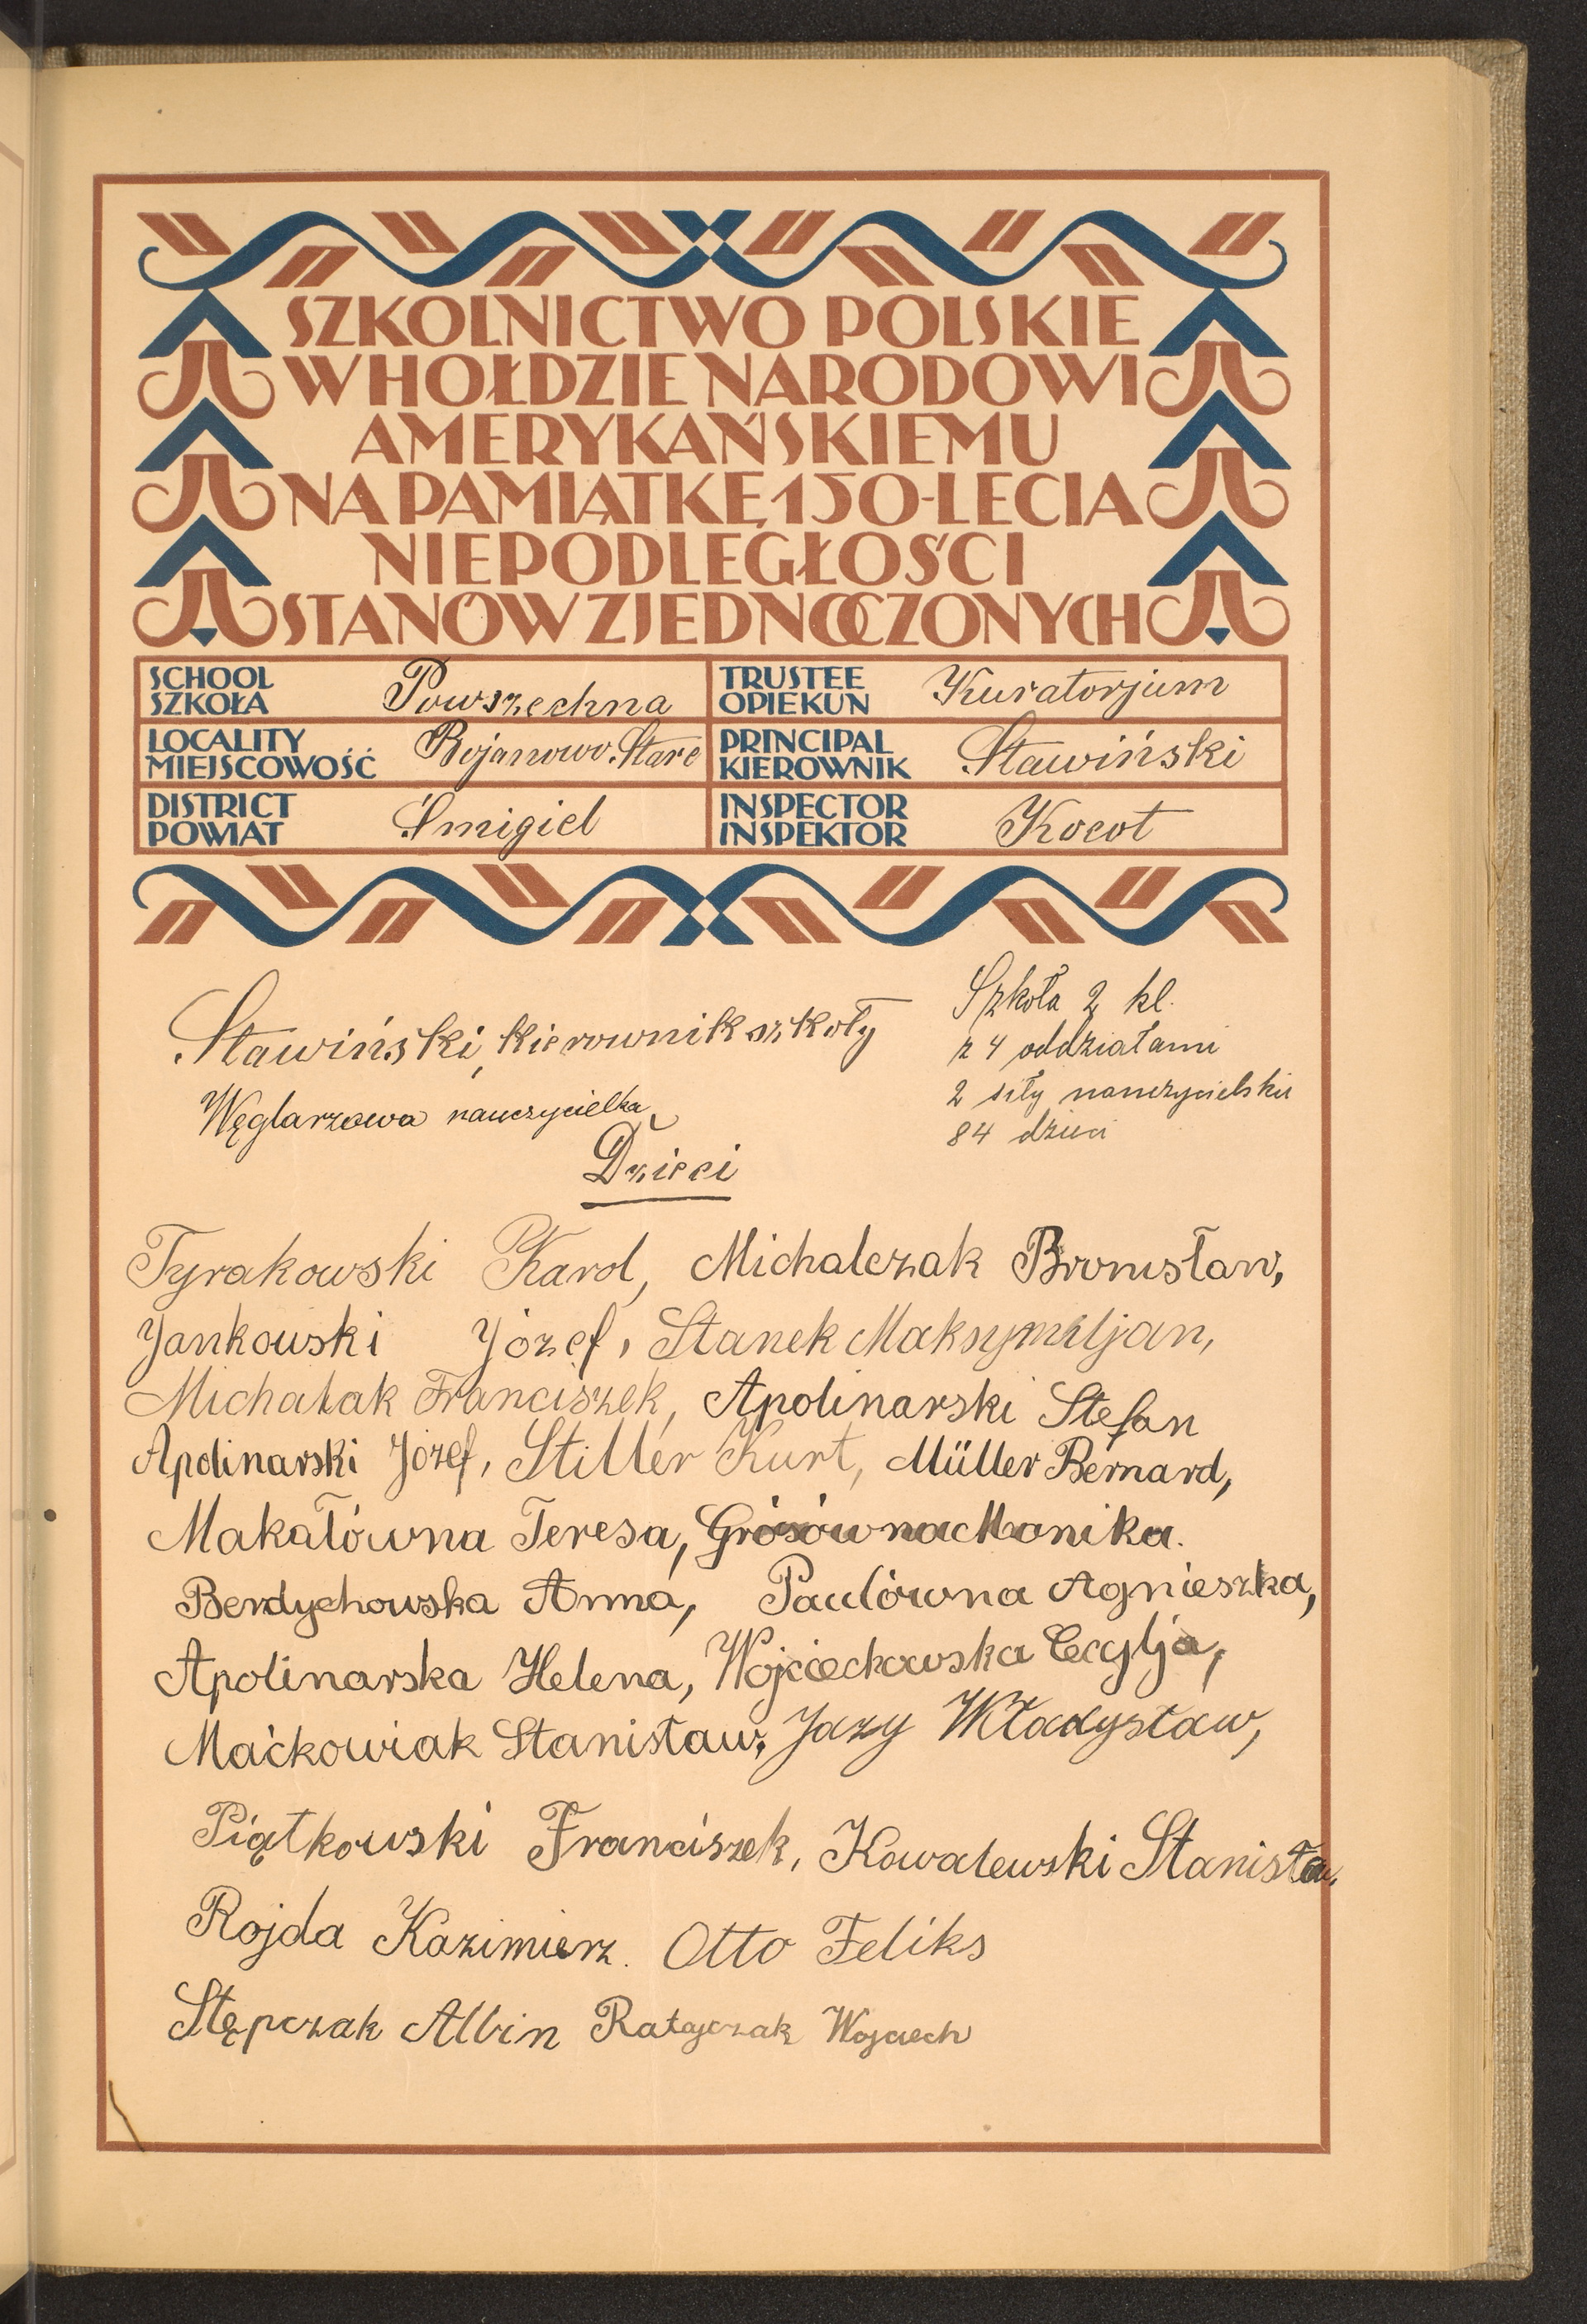 SZKOLNICTWO POLSKIE
W HOŁDZIE NARODOWI
AMERYKAŃSKIEMU
NA PAMIĄTKĘ 150-LECIA
NIEPODLEGŁOŚCI
STANÓW ZJEDNOCZONYCH
SCHOOL
SZKOŁA
Powszechna
TRUSTEE
OPIEKUN
Kuratorjum
LOCALITY
MIEJSCOWOŚĆ
Bojanowo Stare
PRINCIPAL
KIEROWNIK
Stawiński
DISTRICT
POWIAT
Śmigiel
INSPECTOR
INSPEKTOR
Kocot
Stawiński, kierownik szkoły
Węglarzowa nauczycielka
Szkoła 2 kl.
z 4 oddziałami
2 siły nauczycielskie
84 dzieci
Dzieci
Tyrakowski Karol, Michalczak Bronisław,
Jankowski Józef, Stanek Maksymiljan,
Michalak Franciszek, Apolinarski Stefan
Apolinarski Józef, Stiller Kurt, Müller Bernard,
Makałówna Teresa, Monika.
Berdychowska Anna, Paulówna Agnieszka,
Apolinarska Helena, Wojciechowska Cecylja,
Maćkowiak Stanisław, Jazy Władysław,
Piątkowski Franciszek, Kowalewski Stanisław,
Rojda Kazimierz. Otto Feliks
Stępczak Albin Ratajczak Wojciech